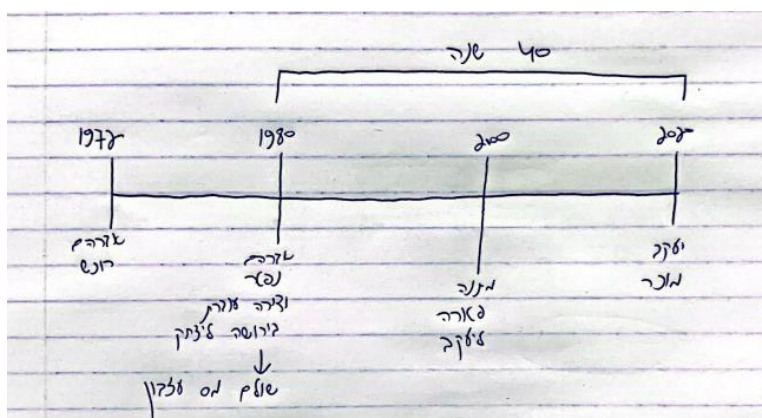 40 שנה
1972
1980
2000
2020
אברהם
רוכש
אברהם
נפטר
ודירה עוברת
בירושה ליצחק
שולם מס עזבון
מתנה
פטורה
ליעקב
יעקב
מוכר